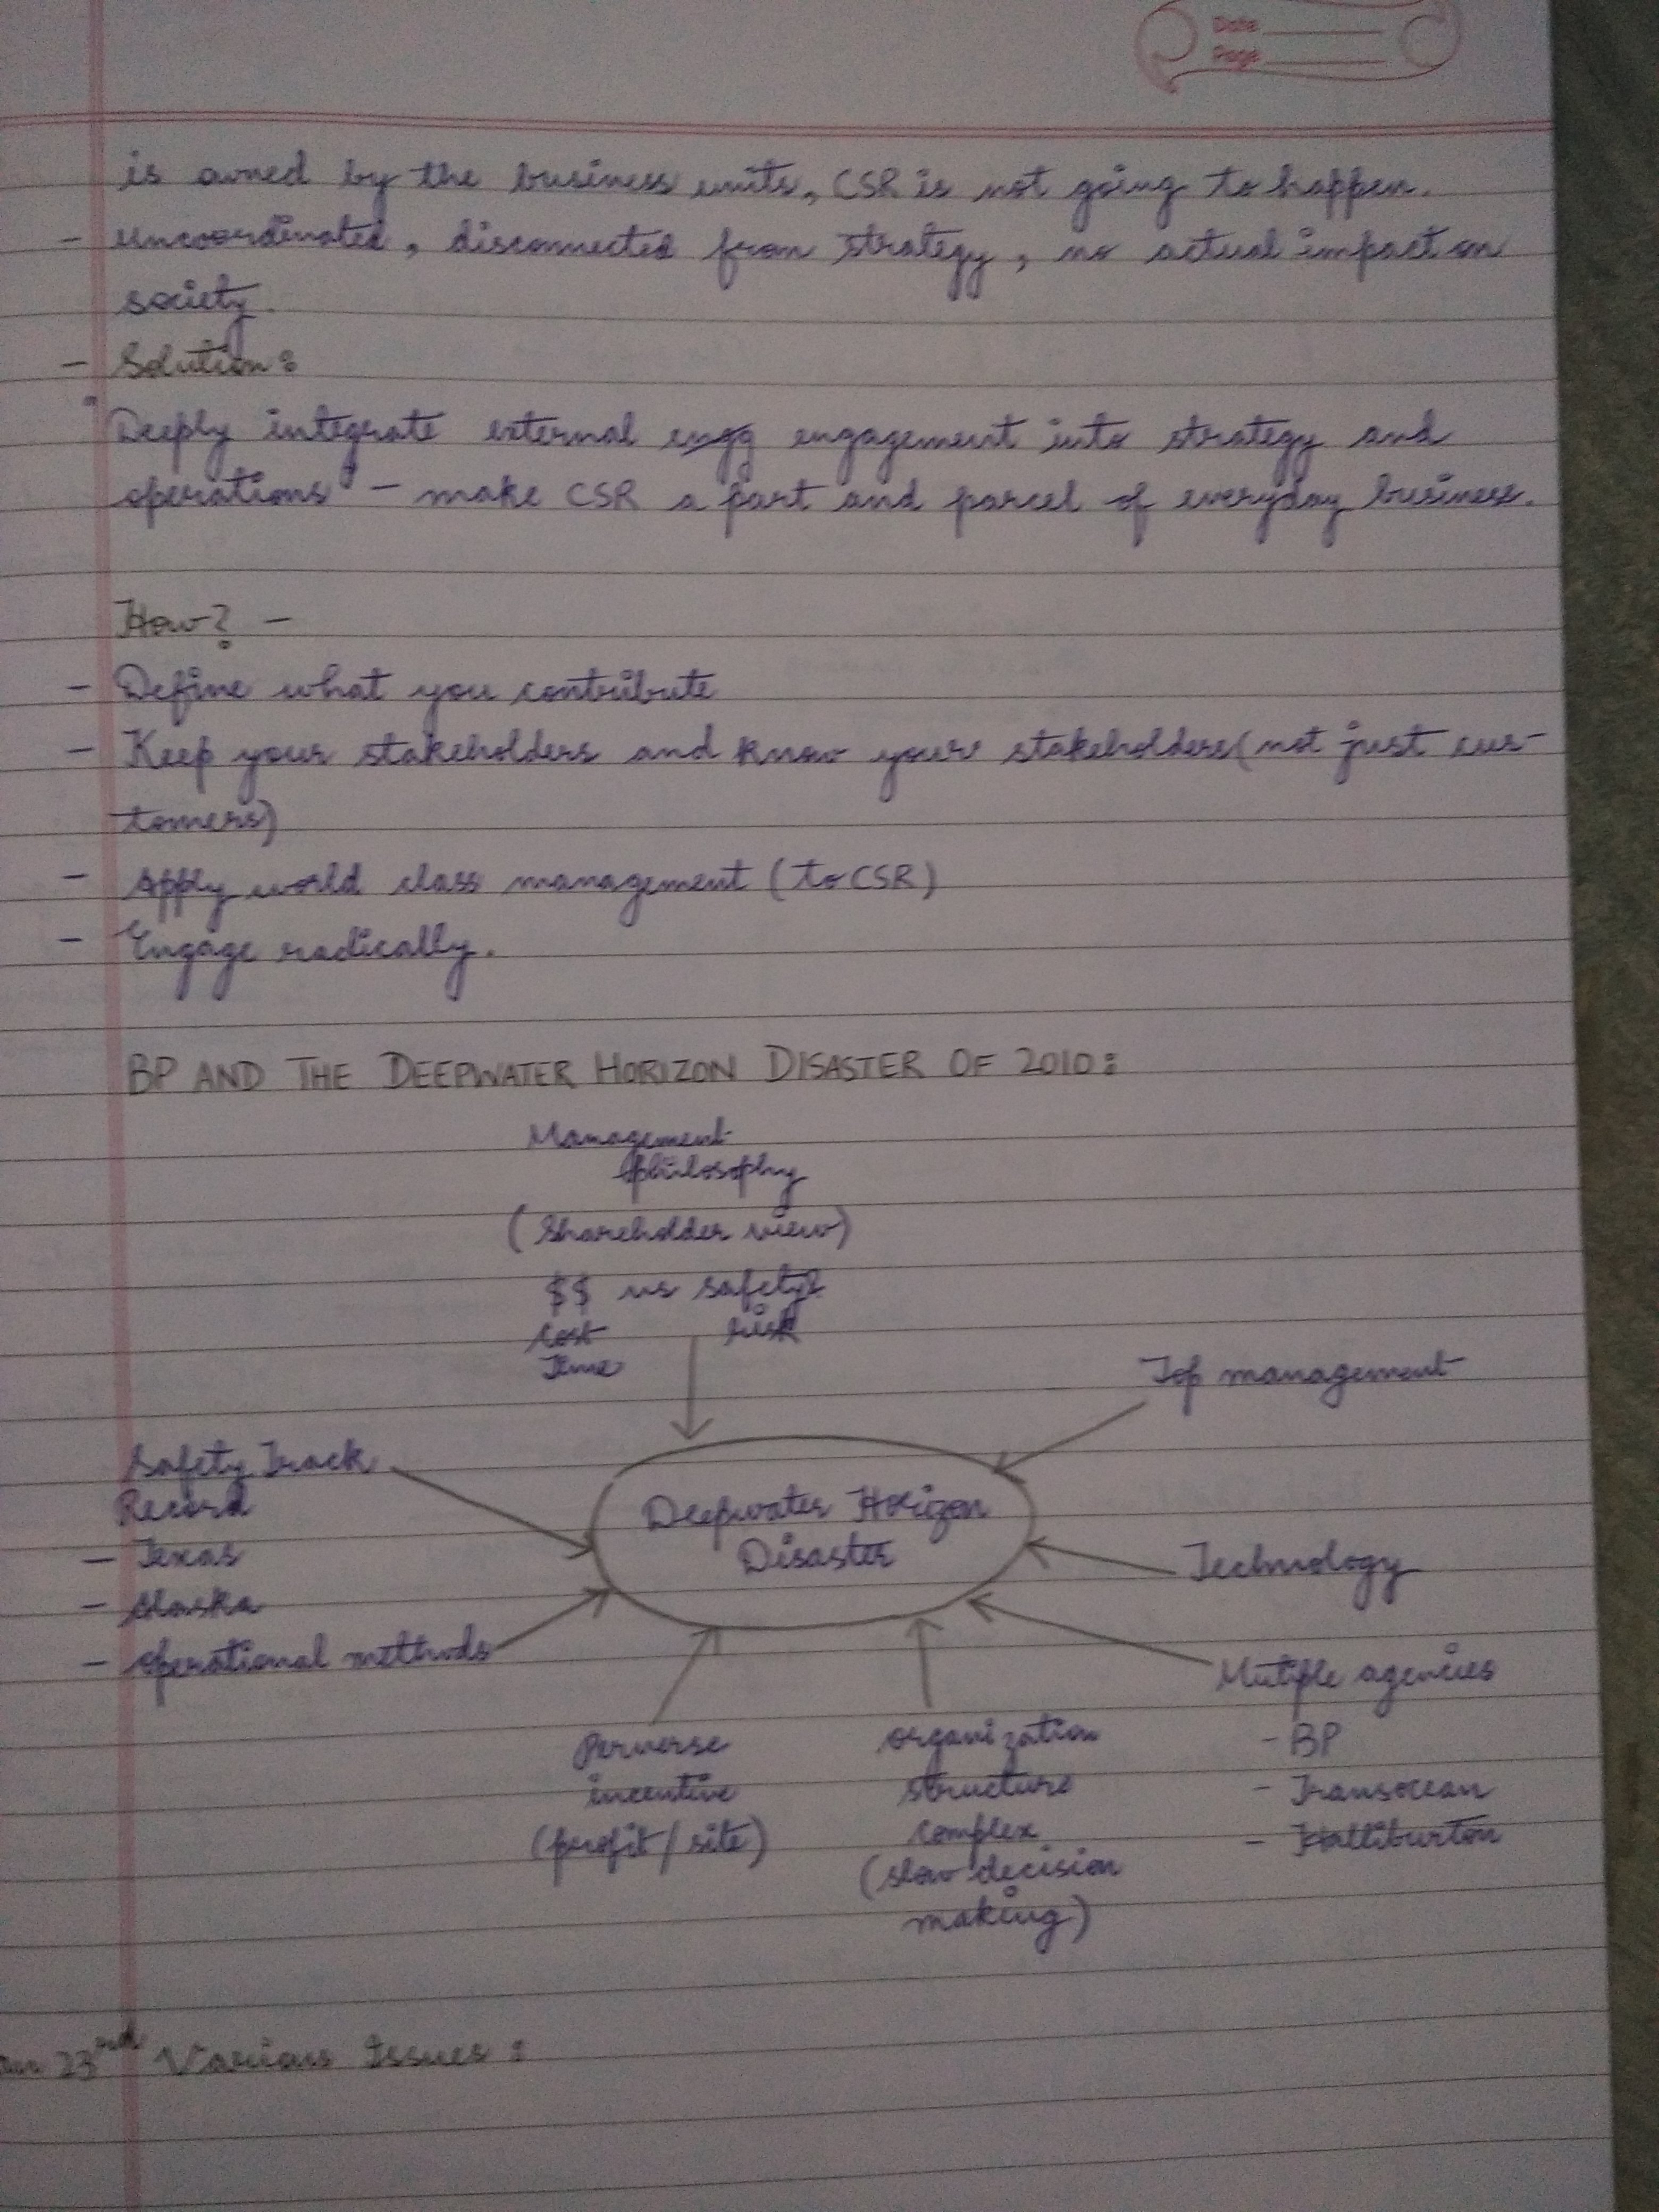 Date
Page
is owned by the business units, CSR is not going to happen.
- Uncoordinated, disconnected from strategy, no actual impact on
society.
- Solution:
Deeply integrate external engg engagement into strategy and
operations - make CSR a part and parcel of everyday business.
How? -
- Define what you contribute
- Keep your stakeholders and know your stakeholders (not just cus-
tomers)
- Apply world class management (to CSR)
- Engage radically.
BP AND THE DEEPWATER HORIZON DISASTER OF 2010:
Management
philosophy
(Shareholder view)
$$ vs safety
cost risk
Time
Top management
Safety Track
Record
- Texas
- Alaska
- operational methods
Deepwater Horizon
Disaster
Technology
Mutiple agencies
- BP
- Transocean
- Halliburton
Perverse
incentive
(profit/site)
organization
structure
complex
(slow decision
making)
23rd Various Issues: